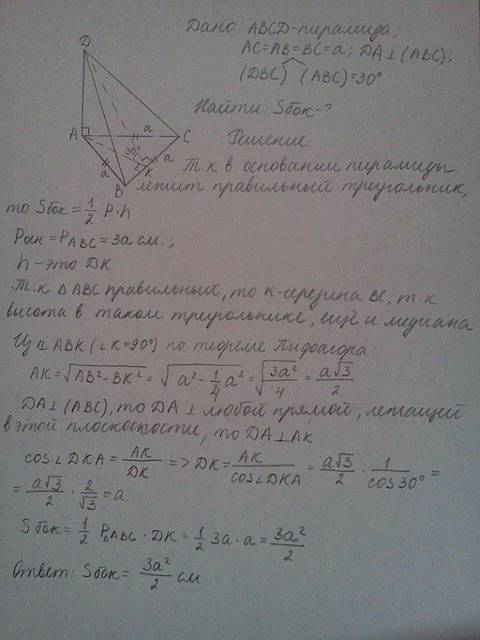 Дано: ABCD-пирамида;
AC=AB=BC=a; DA⊥(ABC);
(DBC)^(ABC)=30°
Найти: Sбок-?
Решение.
Т.к в основании пирамиды
лежит правильный треугольник,
то Sбок=1/2 P·h
Pосн=P_ABC=3a см.;
h-это DK.
Т.к △ABC правильный, то K-середина BC, т.к
высота в таком треугольнике, ещё и медиана
Из △ABK (∠K=90°) по теореме Пифагора:
AK=√(AB²-BK²)=√(a²-1/4a²)=√(3a²/4)=a√3/2
DA⊥(ABC), то DA⊥ любой прямой, лежащей
в этой плоскости, то DA⊥AK.
cos∠DKA=AK/DK => DK=AK/cos∠DKA=a√3/2·1/cos30°=
=a√3/2·2/√3=a
Sбок=1/2 P△ABC·DK=1/2 3a·a=3a²/2
Ответ: Sбок=3a²/2 см
D
A
a
C
30°
a
a
K
B